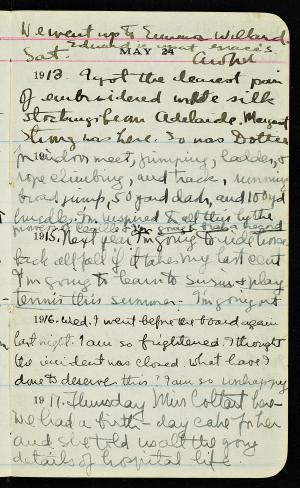 We went up to Emma Willard.
Sat. MAY 24
1913. I got the dearest pair
of embroidered white silk
stockings from Adelaide. Margaret
Strong was here. So was Dottie
Indoor meet, jumping, ladders, &
rope climbing, and track, running
broad jump, 50 yard dash, and 100 yd
hurdles. I'm inspired to all this by the
1915. Next year I'm going to ride horse
back all fall if it takes my last cent
I'm going to learn to swim & play
tennis this summer. I'm going
1916. Wed. I went before the board again
last night. I am so frightened. I thought
the incident was closed. What have I
done to deserve this? I am so unhappy
1917. Thursday Miss here
We had a birth-day cake for her
and she told us all the gory
details of hospital life.